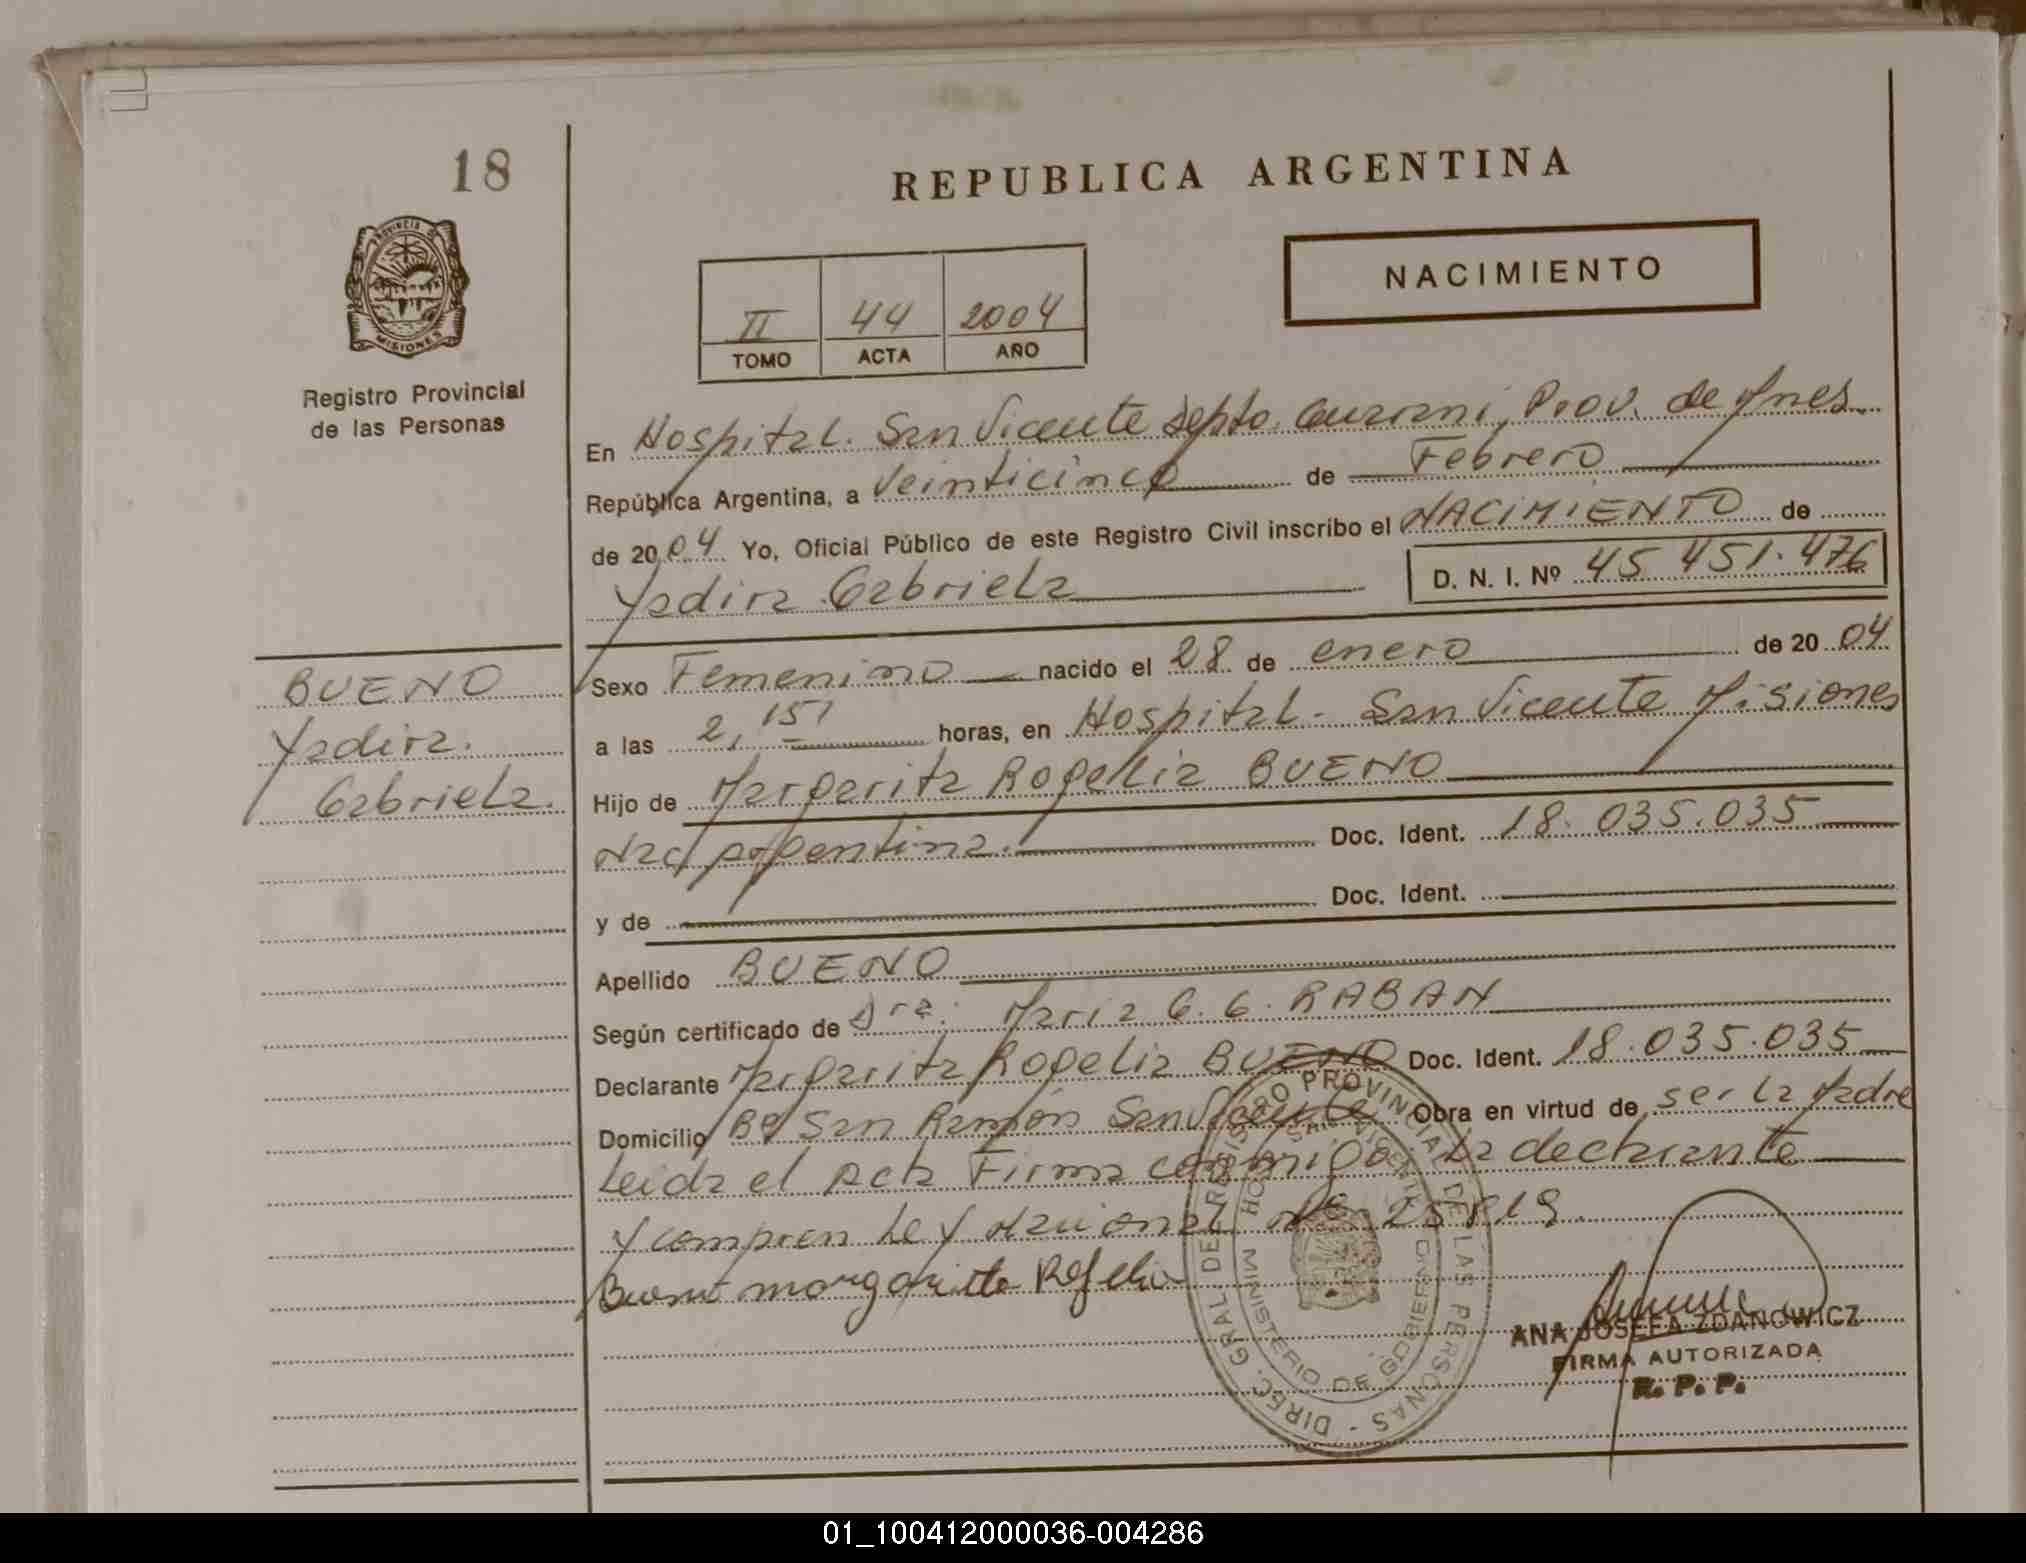 18
REPUBLICA ARGENTINA
NACIMIENTO
II 44 2004
TOMO ACTA AÑO
PROVINCIA DE MISIONES
Registro Provincial
de las Personas
En Hospital. San Vicente Depto. Guarani, Prov. de Mnes
República Argentina, a Veinticinco de Febrero
de 2004 Yo, Oficial Público de este Registro Civil inscribo el NACIMIENTO de
Yadira Gabriela D. N. I. Nº 45 451.476
BUENO
Yadira.
Gabriela.
Sexo Femenino nacido el 28 de enero de 2004
a las 2,15 horas, en Hospital - San Vicente Misiones
Hijo de Margarita Rogelia BUENO
Nac Argentina. Doc. Ident. 18.035.035
y de Doc. Ident.
Apellido BUENO
Según certificado de Dra: Maria G. G. RABAN
Declarante Margarita Rogelia BUENO Doc. Ident. 18.035.035
Domicilio Bº San Ramón San Vicente Obra en virtud de ser la Madre
Leida el Acta Firma conmigo la declarante
y compren Ley Nacional Nº
Bueno margarita
DIREC. GRAL DE REGISTRO PROVINCIAL DE LAS PERSONAS -
MINISTERIO DE GOBIERNO
ANA JOSEFA ZDANOWICZ
FIRMA AUTORIZADA
R. P. P.
01_100412000036-004286